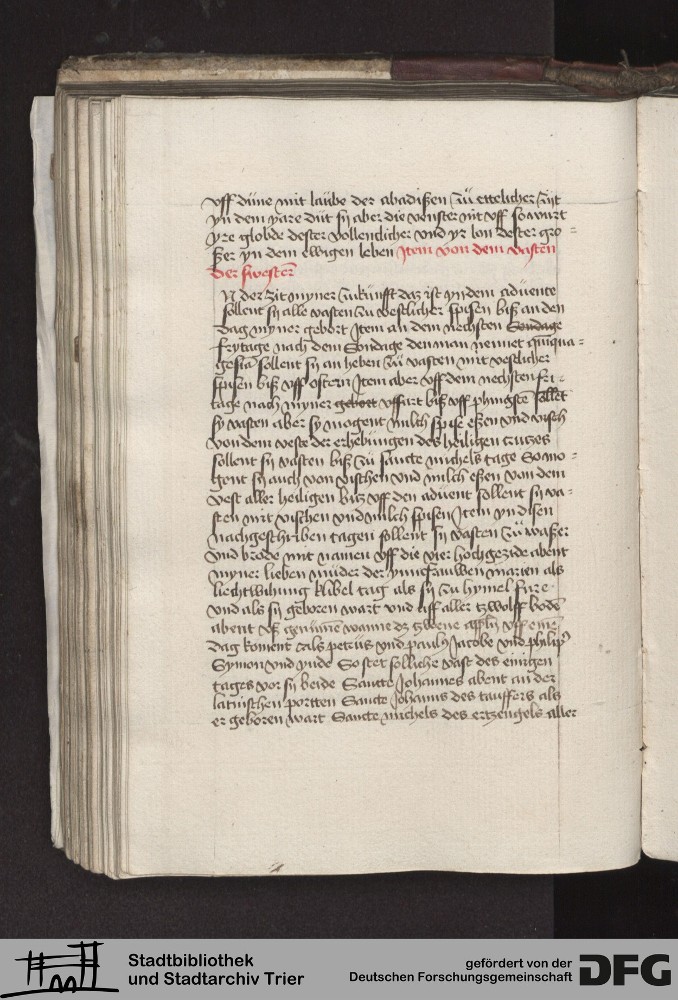 vff düne mit laübe der abadißen zü ettelicher zijt
yn dem yare düt sij aber die venster nit vff so wurt
yre globde dester vollentlicher vnd yr lon dester gro=
ßer yn dem ewigen leben Item von dem vasten
der swestern̄
N der zit myner zükünfft daz ist yn dem aduente
sollent sij alle vasten zü vestlicher spisen biß an den
dag myner gebort Item an dem nechsten Sondage
frytage nach dem Sondage den man nennet quinqua=
gesia sollent sij an heben zü vasten mit vestlicher
spisen biß vff ostern Item aber vff dem nechsten fri=
tage nach myner gebort vffart biß vff phingstē sollēt
sy vasten aber sy mogent milch spise eßen vnd visch
von dem veste der erhebungen des heiligen crutzes
sollent sij vasten biß zü sancte michels tage So mo=
gent sij auch von vischen vnd milch eßen von dem
vest aller heiligen biß vff den aduent sollent sij va=
sten mit vischen vnd milch spisen Item yn disen
nachgeschriben tagen sollent sij vasten zü waßer
vnd brode mit namen vff die vier hochgezide abent
myner lieben müder der yungfrauwen marien als
liechtwihung klibel tag als sij zu hymel fure
vnd als sij geboren wart vnd vff aller tzwolff bodē
abent vß genūmē wanne dz zwene appln̄ vff einē
dag koment Als petrus vnd paulus Jacobe vnd philipꝰ
Symon vnd yude So stet solliche vast des einigen
tages vor sij beide Sancte Johannes abent an der
latinschen portten Sancte Johanns des tauffers als
er geboren wart Sancte michels des ertzengels aller
Stadtbibliothek
und Stadtarchiv Trier
gefördert von der
Deutschen Forschungsgemeinschaft
DFG